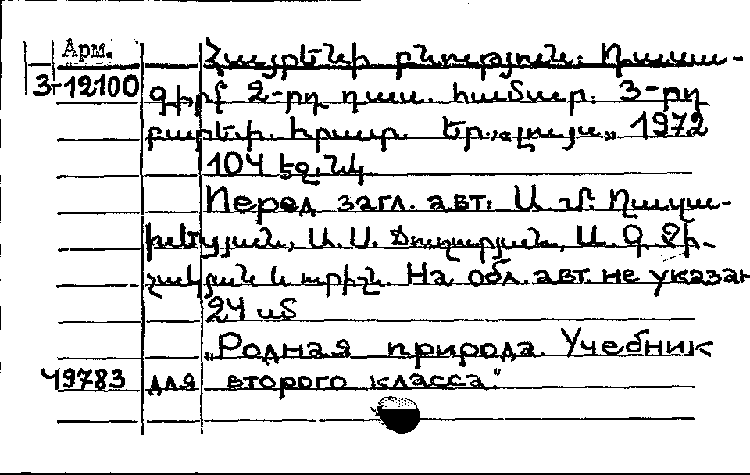 Арм.
3-12100
Հայրենի բնություն: Դասա-
գիրք 2-րդ դաս. համար. 3-րդ
բարեփ. հրատ. Եր., «Լույս» 1972
104 էջ. նկ.
Перед загл. авт.: Ա. Մ.
Ա. Ս. Ա. Գ.
և ուրիշն. На обл. авт. не указан
24 սմ
„Родная природа. Учебник
49783 для второго класса"